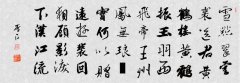 雪點翠雲
裘送君黃
鶴樓黃鶴
振玉羽西
飛帝王州
鳳無琅玕
實何以贈
遠遊裴回
相顧影淚
下漢江流